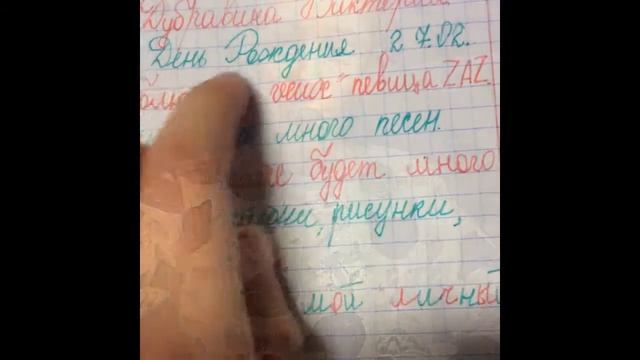 Дубравина Виктория
День Рождения 27.02.
певица ZAZ.
много песен.
будет много
рисунки,
мой личный